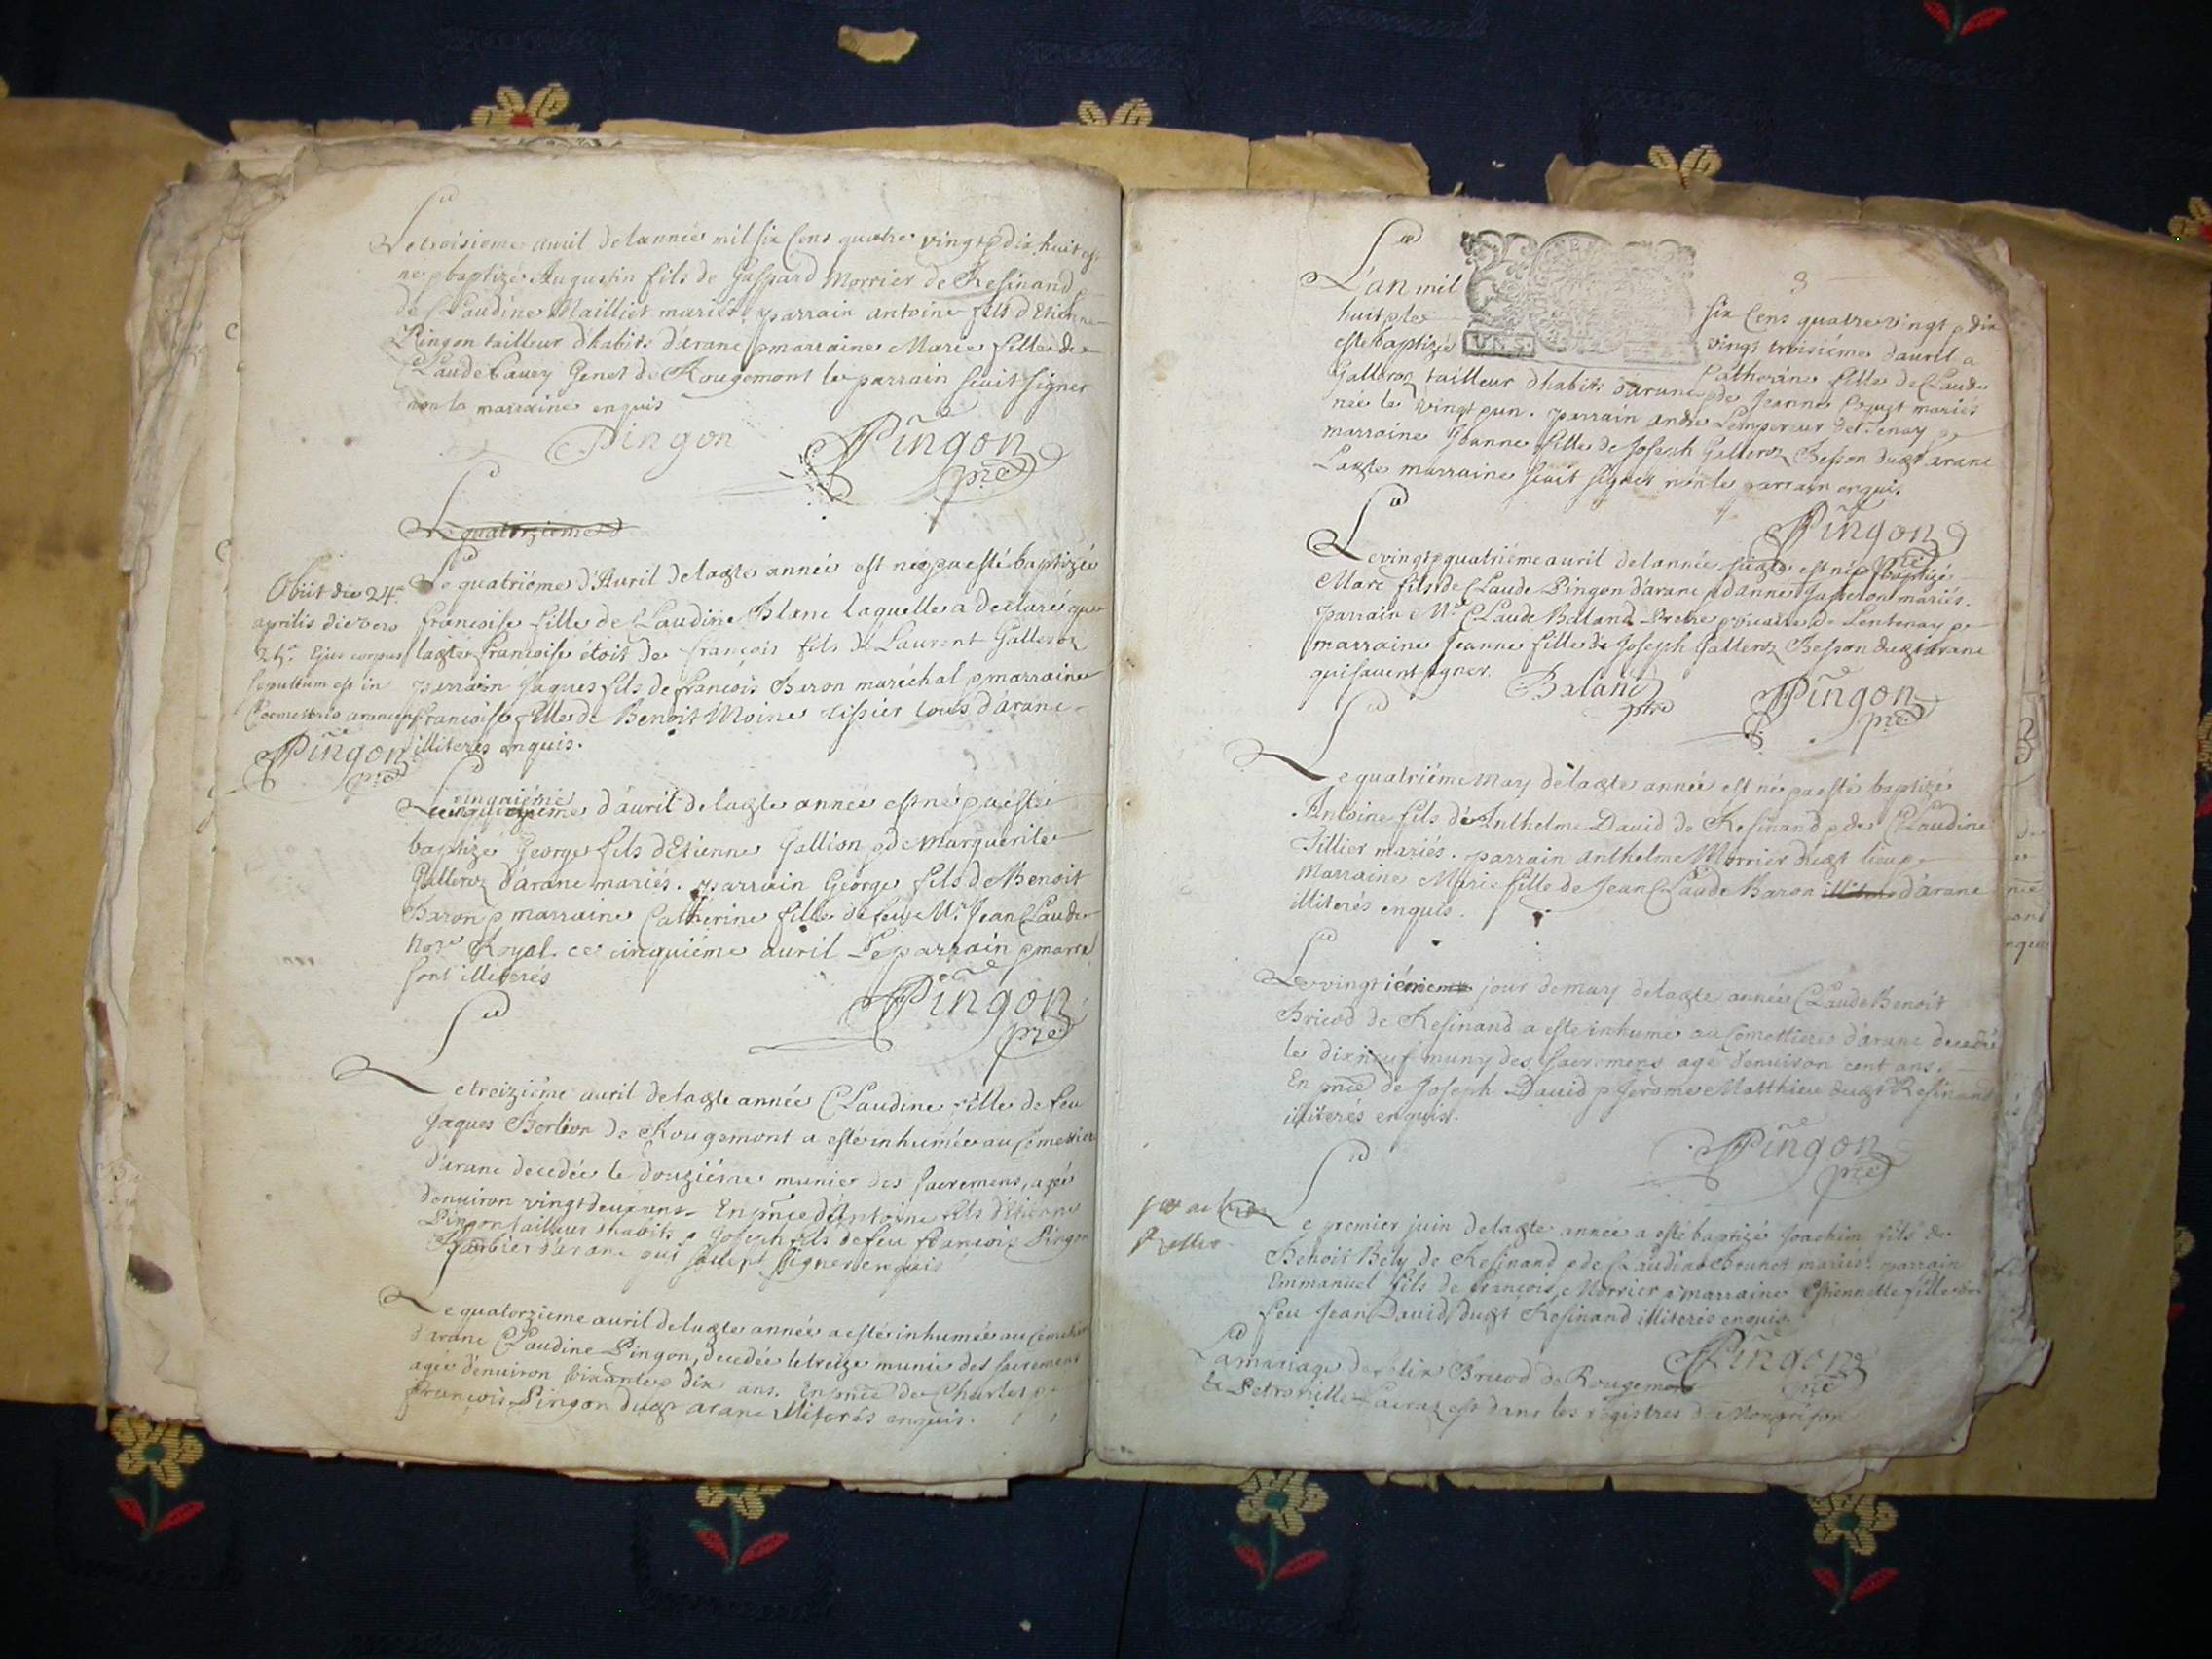 Le troisieme auril de lannée mil six Cens quatre vingt p dix huit est
né p baptizé Augustin fils de Gaspard Morrier de Resinand p
de Claudine Mailliet mariés. parrain antoine fils d'Etienne
Pingon tailleur d'habits d'arane p marraine Marie fille de
Claude Genet de Rougemont le parrain scait signer
non la marraine enquis
Pingon Pingon
pre
Le quatorzieme
Le quatriéme d'Auril de lad.te année est née p a esté baptizée
francoise fille de Claudine Blanc laquelle a declaré que
lad.te francoise étoit de françois fils de Laurent Galleroz
parrain Jaques fils de francois Baron maréchal p marraine
francoise fille de Benoit Moine tissier tous d'arane
illiterés enquis.
Obiit die 24.a
aprilis die vero
25.a Ejus corpus
sepultum est in
Coemetterio aranens
Pingon
pre
cinquiéme
Le d'auril de lad.te année est né p a esté
baptizé George fils d'Etienne Gallion p de Marguerite
Galleroz d'arane mariés. parrain George fils de Benoit
Baron p marraine Catherine fille de feu M.r Jean Claude
No.re Royal. ce cinquiéme auril Le parrain p marra
sont illiterés
Pingon
pre
Le treiziéme auril de lad.te année Claudine fille de feu
Jaques Berlion de Rougemont a esté inhumée au Cemetier
d'arane decedée le douziéme munie des sacremens, agée
denuiron vingt deux ans. En pnce d'Antoine fils d'Etienne
Pingon tailleur d'habits p Joseph fils de feu francois Pingon
Barbier d'arane qui scauent signer enquis
Le quatorzieme auril de lad.te année a esté inhumée au Cemetier
d'arane Claudine Pingon, decedée le treize munie des sacremens
agée denuiron soixante p dix ans. En pnce de Charles p
francois Pingon dud.t arane illiterés enquis.
3
L'an mil six Cens quatre vingt p dix
huit p le vingt troisiéme d'auril a
esté baptizée Catherine fille de Claude
Galleroz tailleur d'habits d'arane p de Jeanne mariés
née le vingt p un. parrain andré Lempereur de Tenay p
marraine Jeanne fille de Joseph Galleroz Besson dud.t arane
Lad.te marraine scait signer non le parrain enquis.
Pingon
pre
Le vingt p quatriéme auril de lannée sud.te est né p baptizé
Marc fils de Claude Pingon d'arane p d'anne mariés.
parrain M.re Claude Baland Pretre p vicaire de Lentenay p
marraine Jeanne fille de Joseph Galleroz Besson dud.t arane
qui sauent signer. Baland Pingon
ptre pre
Le quatriéme May de lad.te année est né p a esté baptizé
Antoine fils de Anthelme Dauid de Resinand p de Claudine
Tillier mariés. parrain anthelme Morrier dud.t lieu p
Marraine Marie fille de Jean Claude Baron d'arane
illiterés enquis.
Le vingtiéme jour de may de lad.te année Claude Benoit
Bricod de Resinand a esté inhumé au Cemettiere d'arane decedé
le dixneuf muny des sacremens agé denuiron cent ans.
En pnce de Joseph Dauid p Jerome Matthieu dud.t Resinand
illiterés enquis.
Pingon
pre
Le premier juin de lad.te année a esté baptizé Joachim fils de
Benoit Bely de Resinand p de Claudine Brunet mariés. parrain
Emmanuel fils de francois Morrier p marraine Estiennette fille de
feu Jean Dauid dud.t Resinand illiterés enquis.
Pingon
pre
La mariage de felix Bricod de Rougemont
& Petronille est dans les régistres de Mongriffon